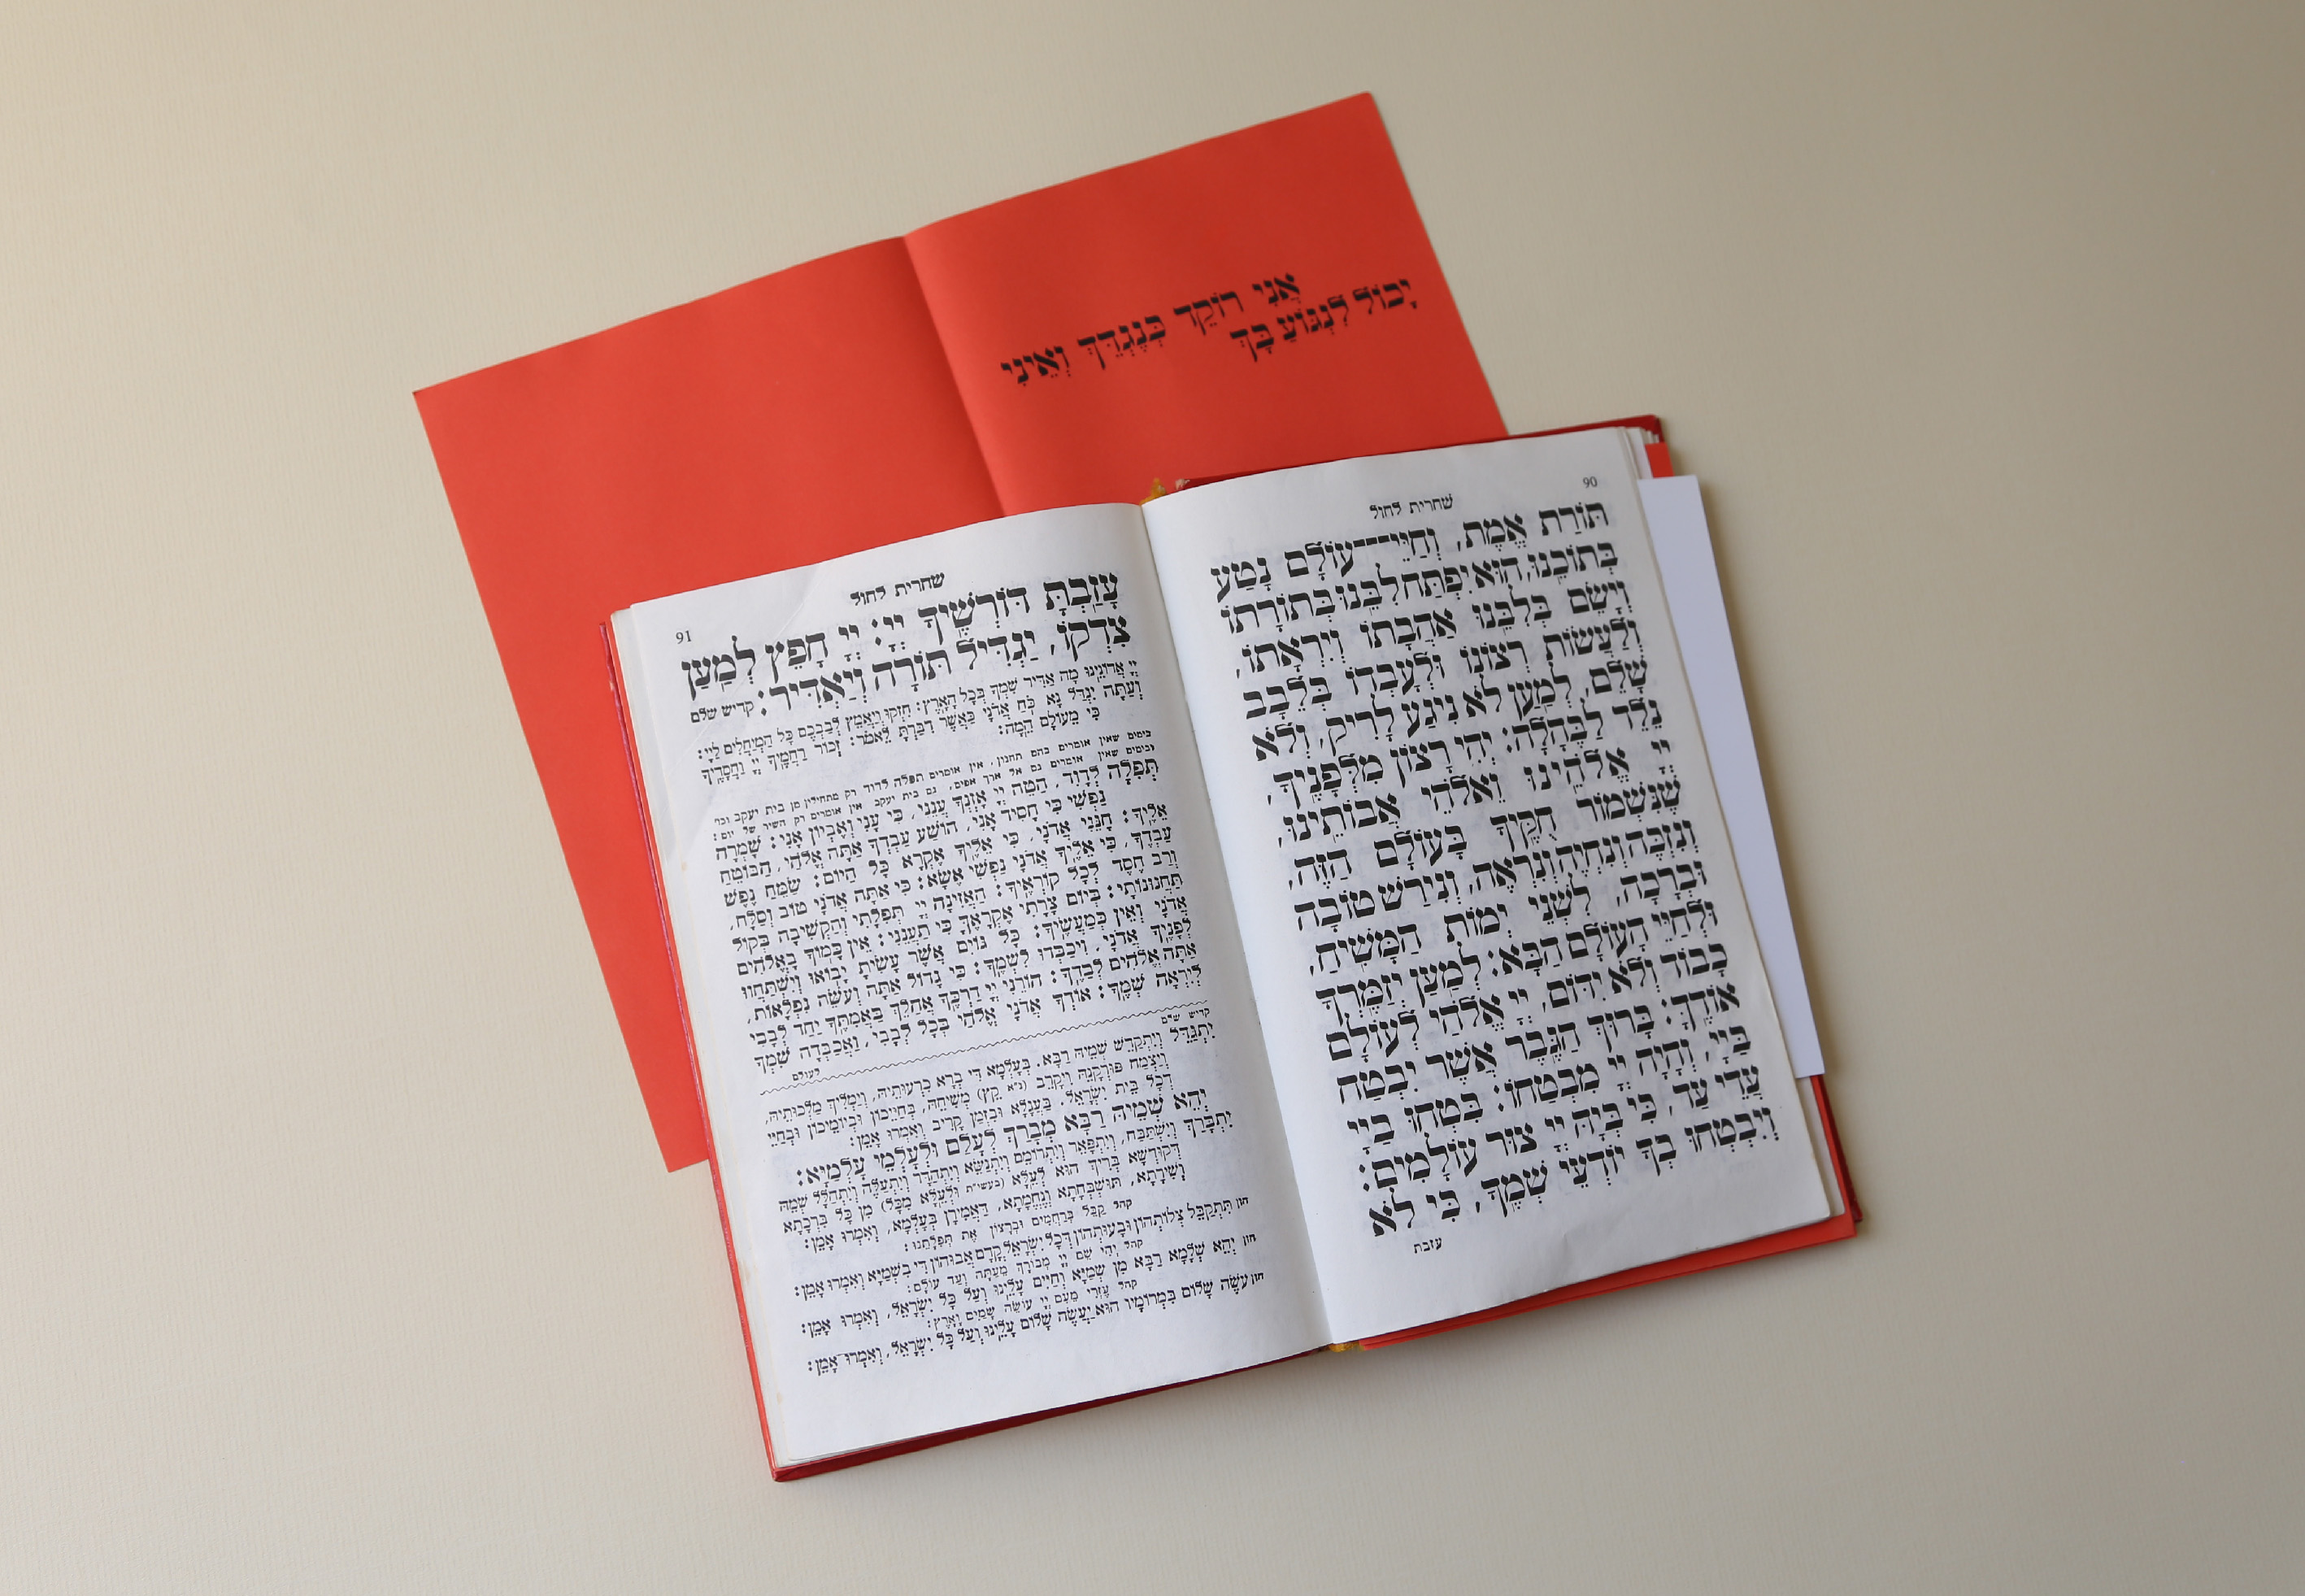 אֲנִי רוֹקֵד כְּנֶגְדֵּךְ וְאֵינִי
יָכוֹל לִנְגּוֹעַ בָּךְ
90
שחרית לחול
תּוֹרַת אֱמֶת, וְחַיֵּי־עוֹלָם נָטַע
בְּתוֹכֵנוּ, הוּא יִפְתַּח לִבֵּנוּ בְּתוֹרָתוֹ
וְיָשֵׂם בְּלִבֵּנוּ אַהֲבָתוֹ וְיִרְאָתוֹ,
וְלַעֲשׂוֹת רְצוֹנוֹ וּלְעָבְדוֹ בְּלֵבָב
שָׁלֵם, לְמַעַן לֹא נִיגַע לָרִיק, וְלֹא
נֵלֵד לַבֶּהָלָה: יְהִי רָצוֹן מִלְּפָנֶיךָ,
יְיָ אֱלֹהֵינוּ וֵאלֹהֵי אֲבוֹתֵינוּ,
שֶׁנִּשְׁמוֹר חֻקֶּיךָ בָּעוֹלָם הַזֶּה,
וְנִזְכֶּה וְנִחְיֶה וְנִרְאֶה, וְנִירַשׁ טוֹבָה
וּבְרָכָה, לִשְׁנֵי יְמוֹת הַמָּשִׁיחַ,
וּלְחַיֵּי הָעוֹלָם הַבָּא: לְמַעַן יְזַמֶּרְךָ
כָבוֹד וְלֹא יִדּוֹם, יְיָ אֱלֹהַי לְעוֹלָם
אוֹדֶךָּ: בָּרוּךְ הַגֶּבֶר אֲשֶׁר יִבְטַח
בַּיְיָ, וְהָיָה יְיָ מִבְטַחוֹ: בִּטְחוּ בַיְיָ
עֲדֵי עַד, כִּי בְּיָהּ יְיָ צוּר עוֹלָמִים:
וְיִבְטְחוּ בְךָ יוֹדְעֵי שְׁמֶךָ, כִּי לֹא
עזבת
שחרית לחול
91
עָזַבְתָּ דּוֹרְשֶׁיךָ יְיָ: יְיָ חָפֵץ לְמַעַן
צִדְקוֹ, יַגְדִּיל תּוֹרָה וְיַאְדִּיר: קדיש שלם
יְיָ אֲדוֹנֵינוּ מָה אַדִּיר שִׁמְךָ בְּכָל הָאָרֶץ: חִזְקוּ וְיַאֲמֵץ לְבַבְכֶם כָּל הַמְיַחֲלִים לַיְיָ:
וְעַתָּה יִגְדַּל נָא כֹּחַ אֲדֹנָי כַּאֲשֶׁר דִּבַּרְתָּ לֵאמֹר: זְכוֹר רַחֲמֶיךָ יְיָ וַחֲסָדֶיךָ
כִּי מֵעוֹלָם הֵמָּה:
בימים שאין אומרים בהם תחנון, אין אומרים תפלה לדוד רק מתחילין מן בית יעקב וכו׳
ובימים שאין אומרים גם אל ארך אפים, גם בית יעקב אין אומרים רק השיר של יום:
תְּפִלָּה לְדָוִד, הַטֵּה יְיָ אָזְנְךָ עֲנֵנִי, כִּי עָנִי וְאֶבְיוֹן אָנִי: שָׁמְרָה
נַפְשִׁי כִּי חָסִיד אָנִי, הוֹשַׁע עַבְדְּךָ אַתָּה אֱלֹהַי, הַבּוֹטֵחַ
אֵלֶיךָ: חָנֵּנִי אֲדֹנָי, כִּי אֵלֶיךָ אֶקְרָא כָּל הַיּוֹם: שַׂמֵּחַ נֶפֶשׁ
עַבְדֶּךָ, כִּי אֵלֶיךָ אֲדֹנָי נַפְשִׁי אֶשָּׂא: כִּי אַתָּה אֲדֹנָי טוֹב וְסַלָּח,
וְרַב חֶסֶד לְכָל קוֹרְאֶיךָ: הַאֲזִינָה יְיָ תְּפִלָּתִי וְהַקְשִׁיבָה בְּקוֹל
תַּחֲנוּנוֹתָי: בְּיוֹם צָרָתִי אֶקְרָאֶךָּ כִּי תַעֲנֵנִי: אֵין כָּמוֹךָ בָאֱלֹהִים
אֲדֹנָי וְאֵין כְּמַעֲשֶׂיךָ: כָּל גּוֹיִם אֲשֶׁר עָשִׂיתָ יָבוֹאוּ וְיִשְׁתַּחֲווּ
לְפָנֶיךָ אֲדֹנָי, וִיכַבְּדוּ לִשְׁמֶךָ: כִּי גָדוֹל אַתָּה וְעֹשֵׂה נִפְלָאוֹת,
אַתָּה אֱלֹהִים לְבַדֶּךָ: הוֹרֵנִי יְיָ דַּרְכֶּךָ אֲהַלֵּךְ בַּאֲמִתֶּךָ יַחֵד לְבָבִי
לְיִרְאָה שְׁמֶךָ: אוֹדְךָ אֲדֹנָי אֱלֹהַי בְּכָל לְבָבִי, וַאֲכַבְּדָה שִׁמְךָ
לעולם
קדיש שלם
יִתְגַּדַּל וְיִתְקַדַּשׁ שְׁמֵיהּ רַבָּא. בְּעָלְמָא דִּי בְרָא כִרְעוּתֵיהּ, וְיַמְלִיךְ מַלְכוּתֵיהּ,
וְיַצְמַח פּוּרְקָנֵהּ וִיקָרֵב (נ״א קֵץ) מְשִׁיחֵהּ, בְּחַיֵּיכוֹן וּבְיוֹמֵיכוֹן וּבְחַיֵּי
דְכָל בֵּית יִשְׂרָאֵל. בַּעֲגָלָא וּבִזְמַן קָרִיב וְאִמְרוּ אָמֵן:
יְהֵא שְׁמֵיהּ רַבָּא מְבָרַךְ לְעָלַם וּלְעָלְמֵי עָלְמַיָּא:
יִתְבָּרַךְ וְיִשְׁתַּבַּח, וְיִתְפָּאַר וְיִתְרוֹמַם וְיִתְנַשֵּׂא וְיִתְהַדָּר וְיִתְעַלֶּה וְיִתְהַלָּל שְׁמֵהּ
דְּקוּדְשָׁא בְּרִיךְ הוּא לְעֵלָּא (בעשי״ת וּלְעֵלָּא מִכָּל) מִן כָּל בִּרְכָתָא
וְשִׁירָתָא, תּוּשְׁבְּחָתָא וְנֶחֱמָתָא, דַּאֲמִירָן בְּעָלְמָא, וְאִמְרוּ אָמֵן:
קהל קַבֵּל בְּרַחֲמִים וּבְרָצוֹן אֶת תְּפִלָּתֵנוּ:
חזן תִּתְקַבֵּל צְלוֹתְהוֹן וּבָעוּתְהוֹן דְּכָל יִשְׂרָאֵל קֳדָם אֲבוּהוֹן דִּי בִשְׁמַיָּא וְאִמְרוּ אָמֵן:
קהל יְהִי שֵׁם יְיָ מְבוֹרָךְ מֵעַתָּה וְעַד עוֹלָם:
חזן יְהֵא שְׁלָמָא רַבָּא מִן שְׁמַיָּא וְחַיִּים עָלֵינוּ וְעַל כָּל יִשְׂרָאֵל, וְאִמְרוּ אָמֵן:
קהל עֶזְרִי מֵעִם יְיָ עוֹשֵׂה שָׁמַיִם וָאָרֶץ:
חזן עֹשֶׂה שָׁלוֹם בִּמְרוֹמָיו הוּא יַעֲשֶׂה שָׁלוֹם עָלֵינוּ וְעַל כָּל יִשְׂרָאֵל, וְאִמְרוּ אָמֵן: